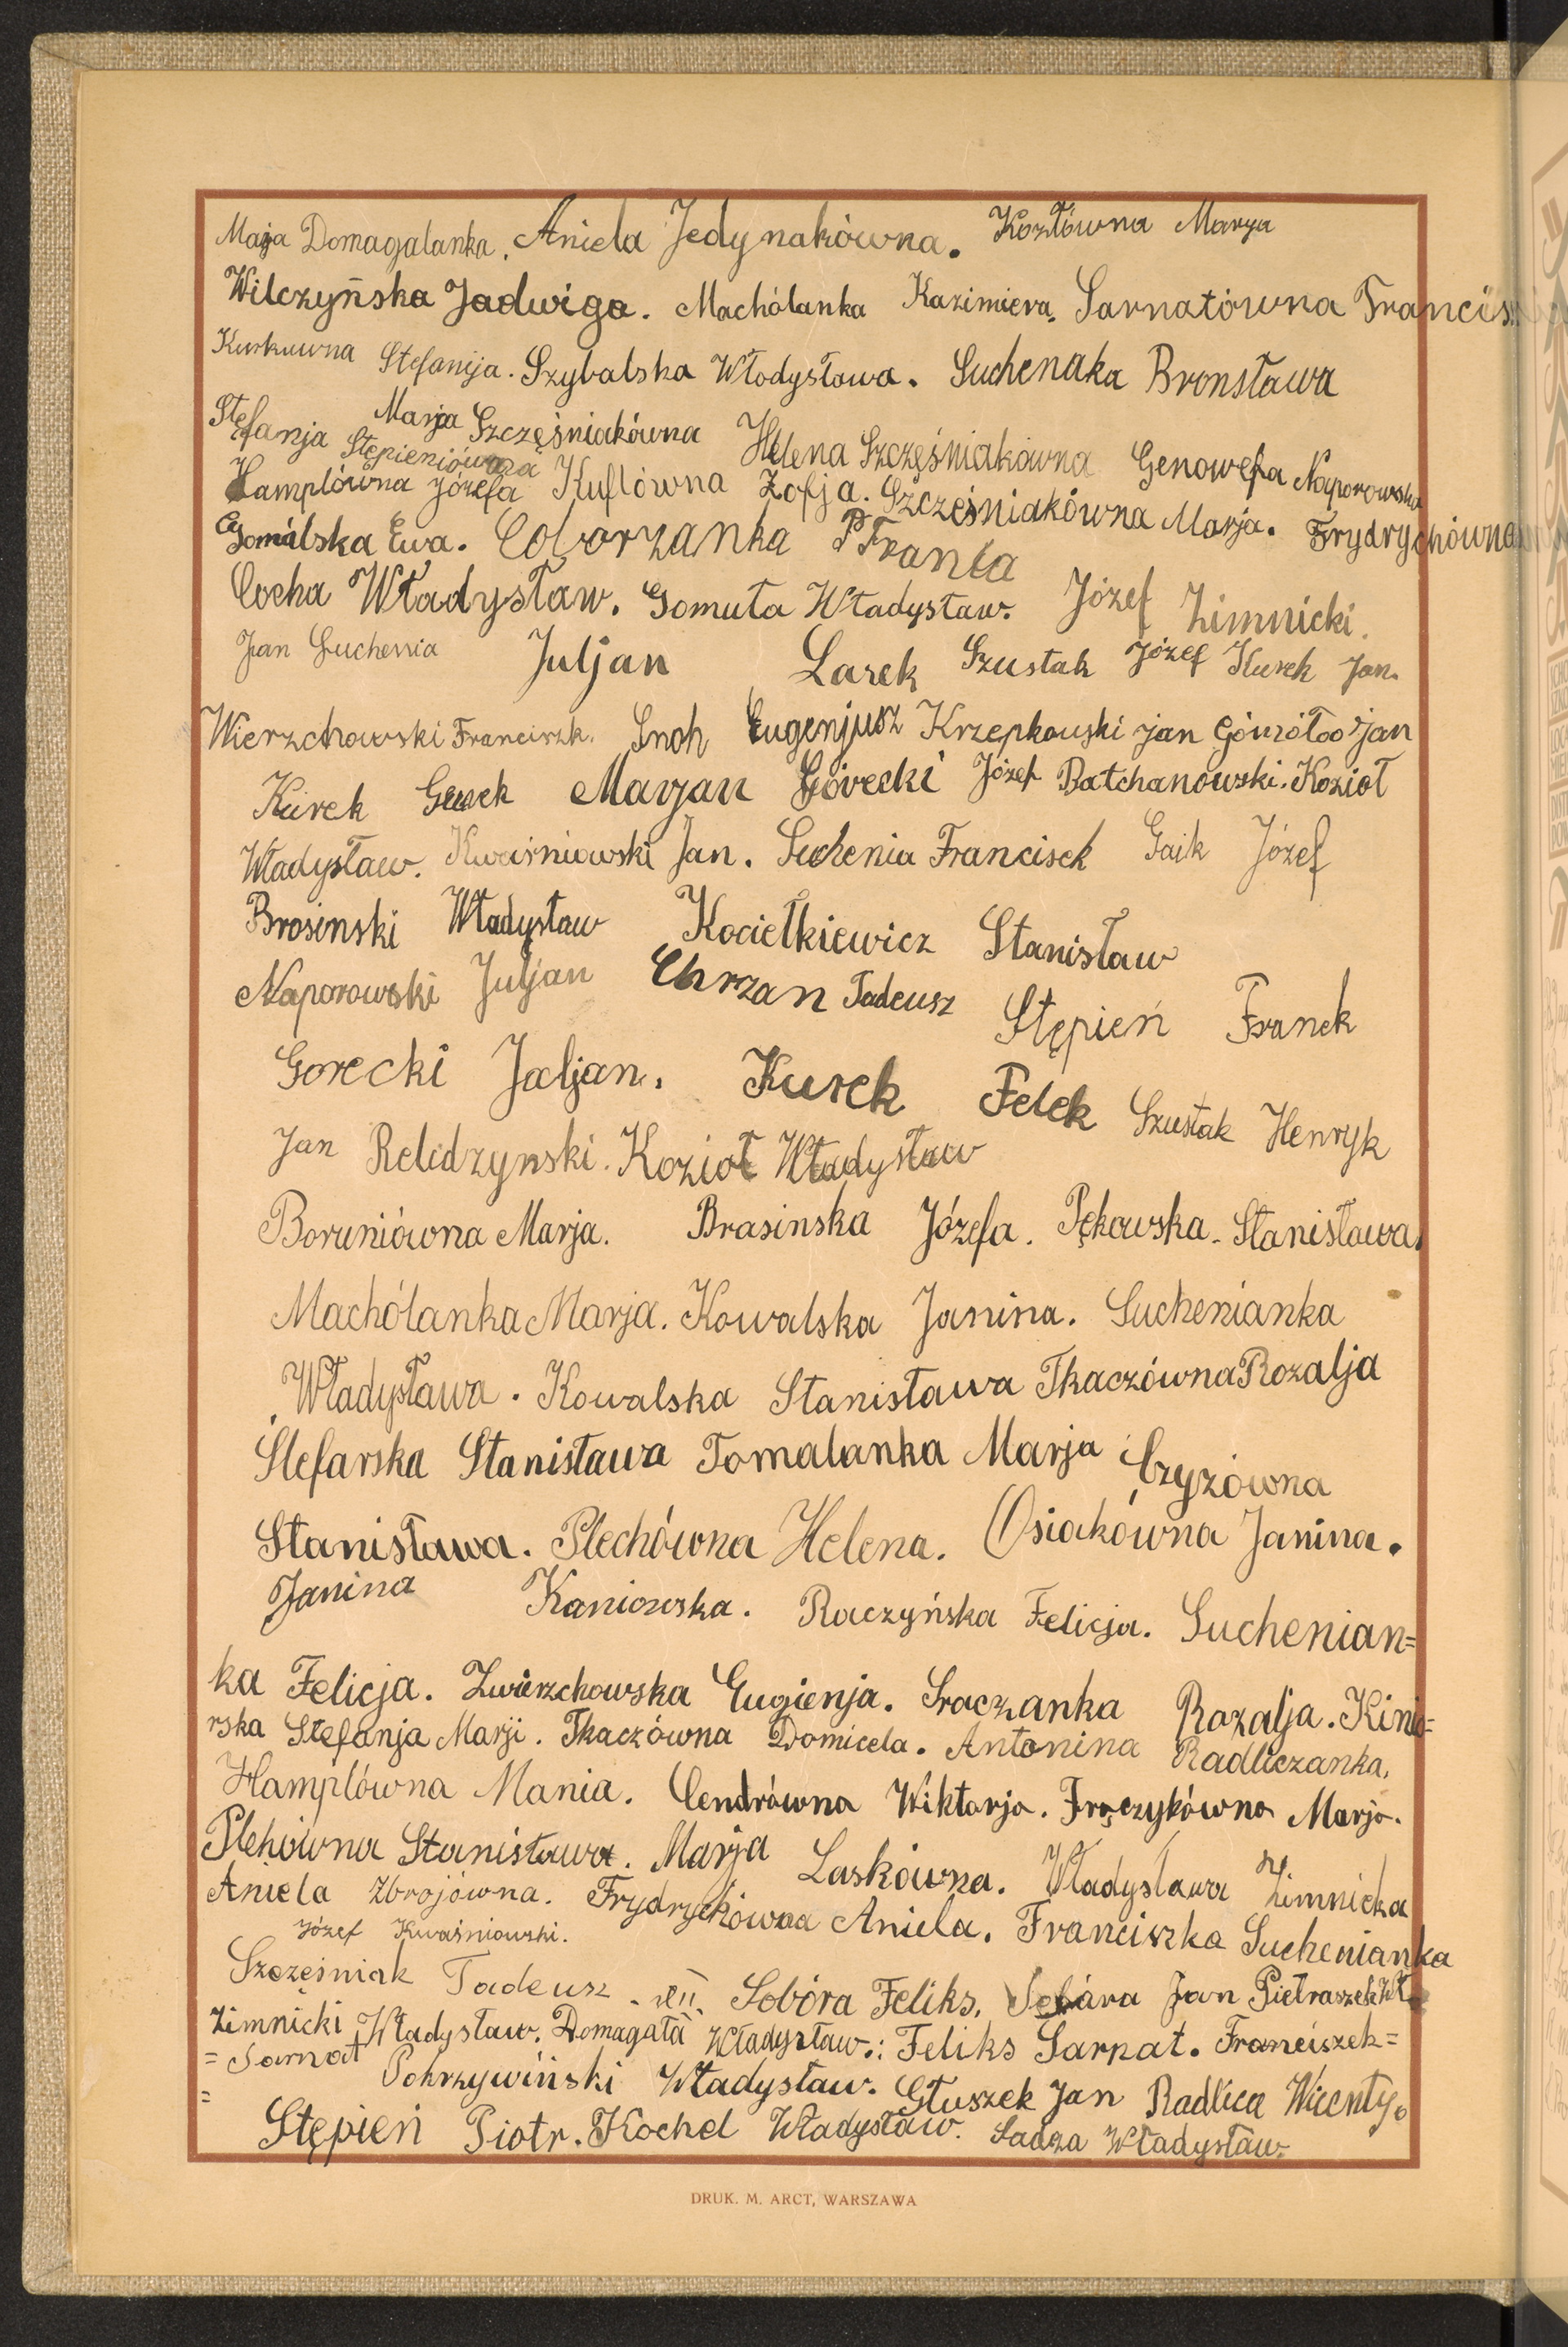 Marja Domagalanka. Aniela Jedynakówna. Kozłówna Marya
Wilczyńska Jadwiga. Machólanka Kazimiera. Sarnatówna Francisz
Kurkuwna Stefanija. Szybalska Włodysława. Suchenaka Bronsława
Stefanja Stępieniówna Marja Szczęśniakówna Helena Szczęśniakówna Genowefa Naporowska
Hamplówna Józefa Kuflówna Zofja. Szczęśniakówna Marja. Frydrychówna
Gomólska Ewa. Coborzanka Frania
Cocha Władysław. Gomuła Władysław. Józef Zimnicki.
Jan Suchenia Juljan Larek Szustak Józef Kurek Jan.
Wierzchowski Franciszk. Snoh Eugenjusz Krzepkowski Jan Jan
Kurek Marjan Górecki Józef Batchanowski. Kozioł
Władysław. Kwaśniowski Jan. Suchenia Francisek Gaik Józef
Brosinski Władysław Kociełkiewicz Stanisław
Naporowski Juljan Chrzan Tadeusz Stępień Franek
Gorecki Juljan. Kurek Felek Szustak Henryk
Jan Relidzynski. Kozioł Władysław
Boruniówna Marja. Brasinska Józefa. Pękowska. Stanisława.
Machólanka Marja. Kowalska Janina. Suchenianka
Władysława. Kowalska Stanisława Tkaczówna Rozalja
Stefarska Stanisława Tomalanka Marja Czyżówna
Stanisława. Plechówna Helena. Osiakówna Janina.
Janina Kaniowska. Raczyńska Felicja. Suchenian=
ka Felicja. Zwierzchowska Eugienja. Sraczanka Rozalja. Kinio=
rska Stefanja Marji. Tkaczówna Domicela. Antonina Radliczanka.
Hamplówna Mania. Cendrówna Wiktorja. Frączykówna Marja.
Plehówna Stanisława. Marja Laskówna. Władysława Zimnicka
Aniela Zbrojówna. Frydrychówna Aniela. Franciszka Suchenianka
Józef Kwaśniowski.
Szczęśniak Tadeusz Sobóra Feliks, Sobóra Jan Pietraszek Wł.
Zimnicki Władysław. Domagała Władysław.: Feliks Sarnat. Franciszek=
= Sarnat Pokrzywiński Władysław. Głuszek Jan Radlica Wicenty.
Stępień Piotr. Kochel Władysław. Sadza Władysław.
DRUK. M. ARCT, WARSZAWA